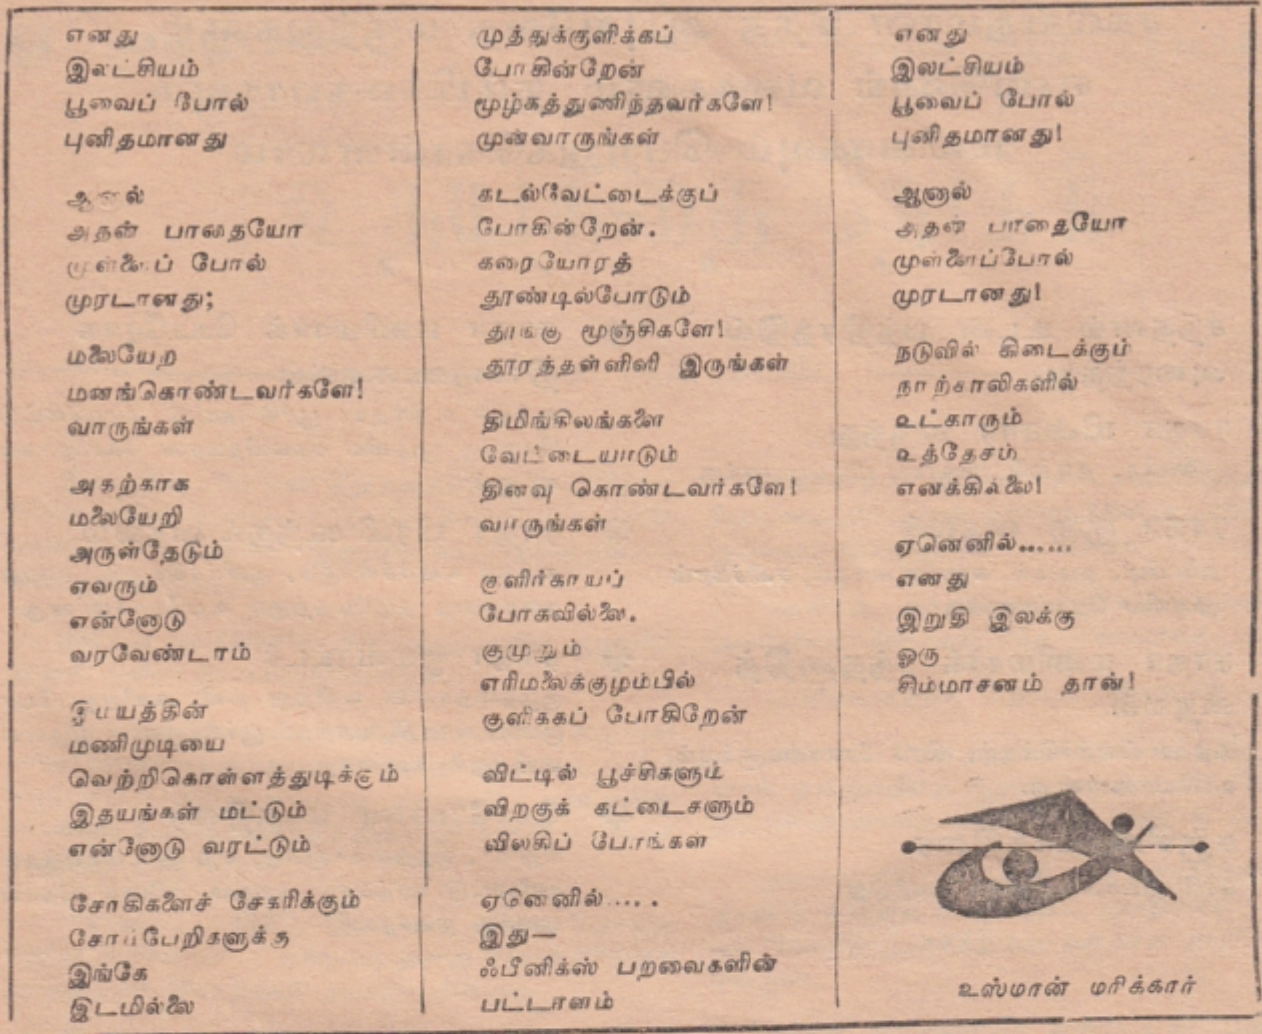 எனது
இலட்சியம்
பூவைப் போல்
புனிதமானது
ஆனால்
அதன் பாதையோ
முள்ளைப் போல்
முரடானது;
மலையேற
மனங்கொண்டவர்களே!
வாருங்கள்
அதற்காக
மலையேறி
அருள்தேடும்
எவரும்
என்னோடு
வரவேண்டாம்
இமயத்தின்
மணிமுடியை
வெற்றிகொள்ளத்துடிக்கும்
இதயங்கள் மட்டும்
என்னோடு வரட்டும்
சோகிகளைச் சேகரிக்கும்
சோம்பேறிகளுக்கு
இங்கே
இடமில்லை
முத்துக்குளிக்கப்
போகின்றேன்
மூழ்கத்துணிந்தவர்களே!
முன்வாருங்கள்
கடல்வேட்டைக்குப்
போகின்றேன்.
கரையோரத்
தூண்டில்போடும்
தூங்கு மூஞ்சிகளே!
தூரத்தள்ளி இருங்கள்
திமிங்கிலங்களை
வேட்டையாடும்
தினவு கொண்டவர்களே!
வாருங்கள்
குளிர்காயப்
போகவில்லை.
குமுறும்
எரிமலைக்குழம்பில்
குளிக்கப் போகிறேன்
விட்டில் பூச்சிகளும்
விறகுக் கட்டைகளும்
விலகிப் போங்கள்
ஏனெனில்.....
இது—
ஃபீனிக்ஸ் பறவைகளின்
பட்டாளம்
எனது
இலட்சியம்
பூவைப் போல்
புனிதமானது!
ஆனால்
அதன் பாதையோ
முள்ளைப்போல்
முரடானது!
நடுவில் கிடைக்கும்
நாற்காலிகளில்
உட்காரும்
உத்தேசம்
எனக்கில்லை!
ஏனெனில்......
எனது
இறுதி இலக்கு
ஓரு
சிம்மாசனம் தான்!
உஸ்மான் மரிக்கார்